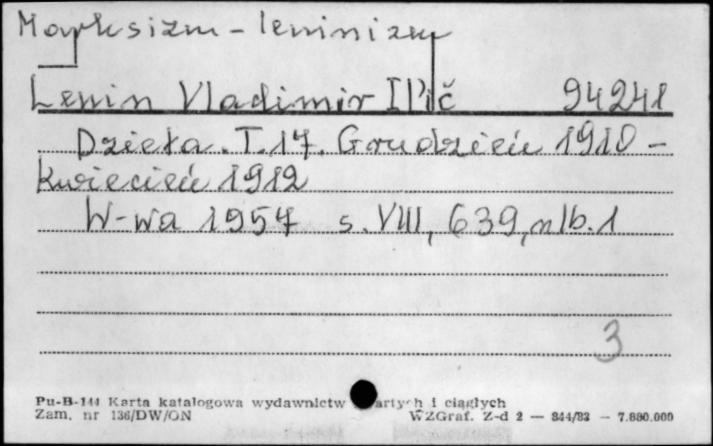 Marksizm - leninizm
Lenin Vladimir Il'ič 94241
Dzieła. T. 17. Grudzień 1910 -
kwiecień 1912
W-wa 1957 s. VIII, 639, nlb. 1
3
Pu-B-144 Karta katalogowa wydawnictw zwartych i ciągłych
Zam. nr 136/DW/ON WZGraf. Z-d 2 — 344/83 — 7.880.000